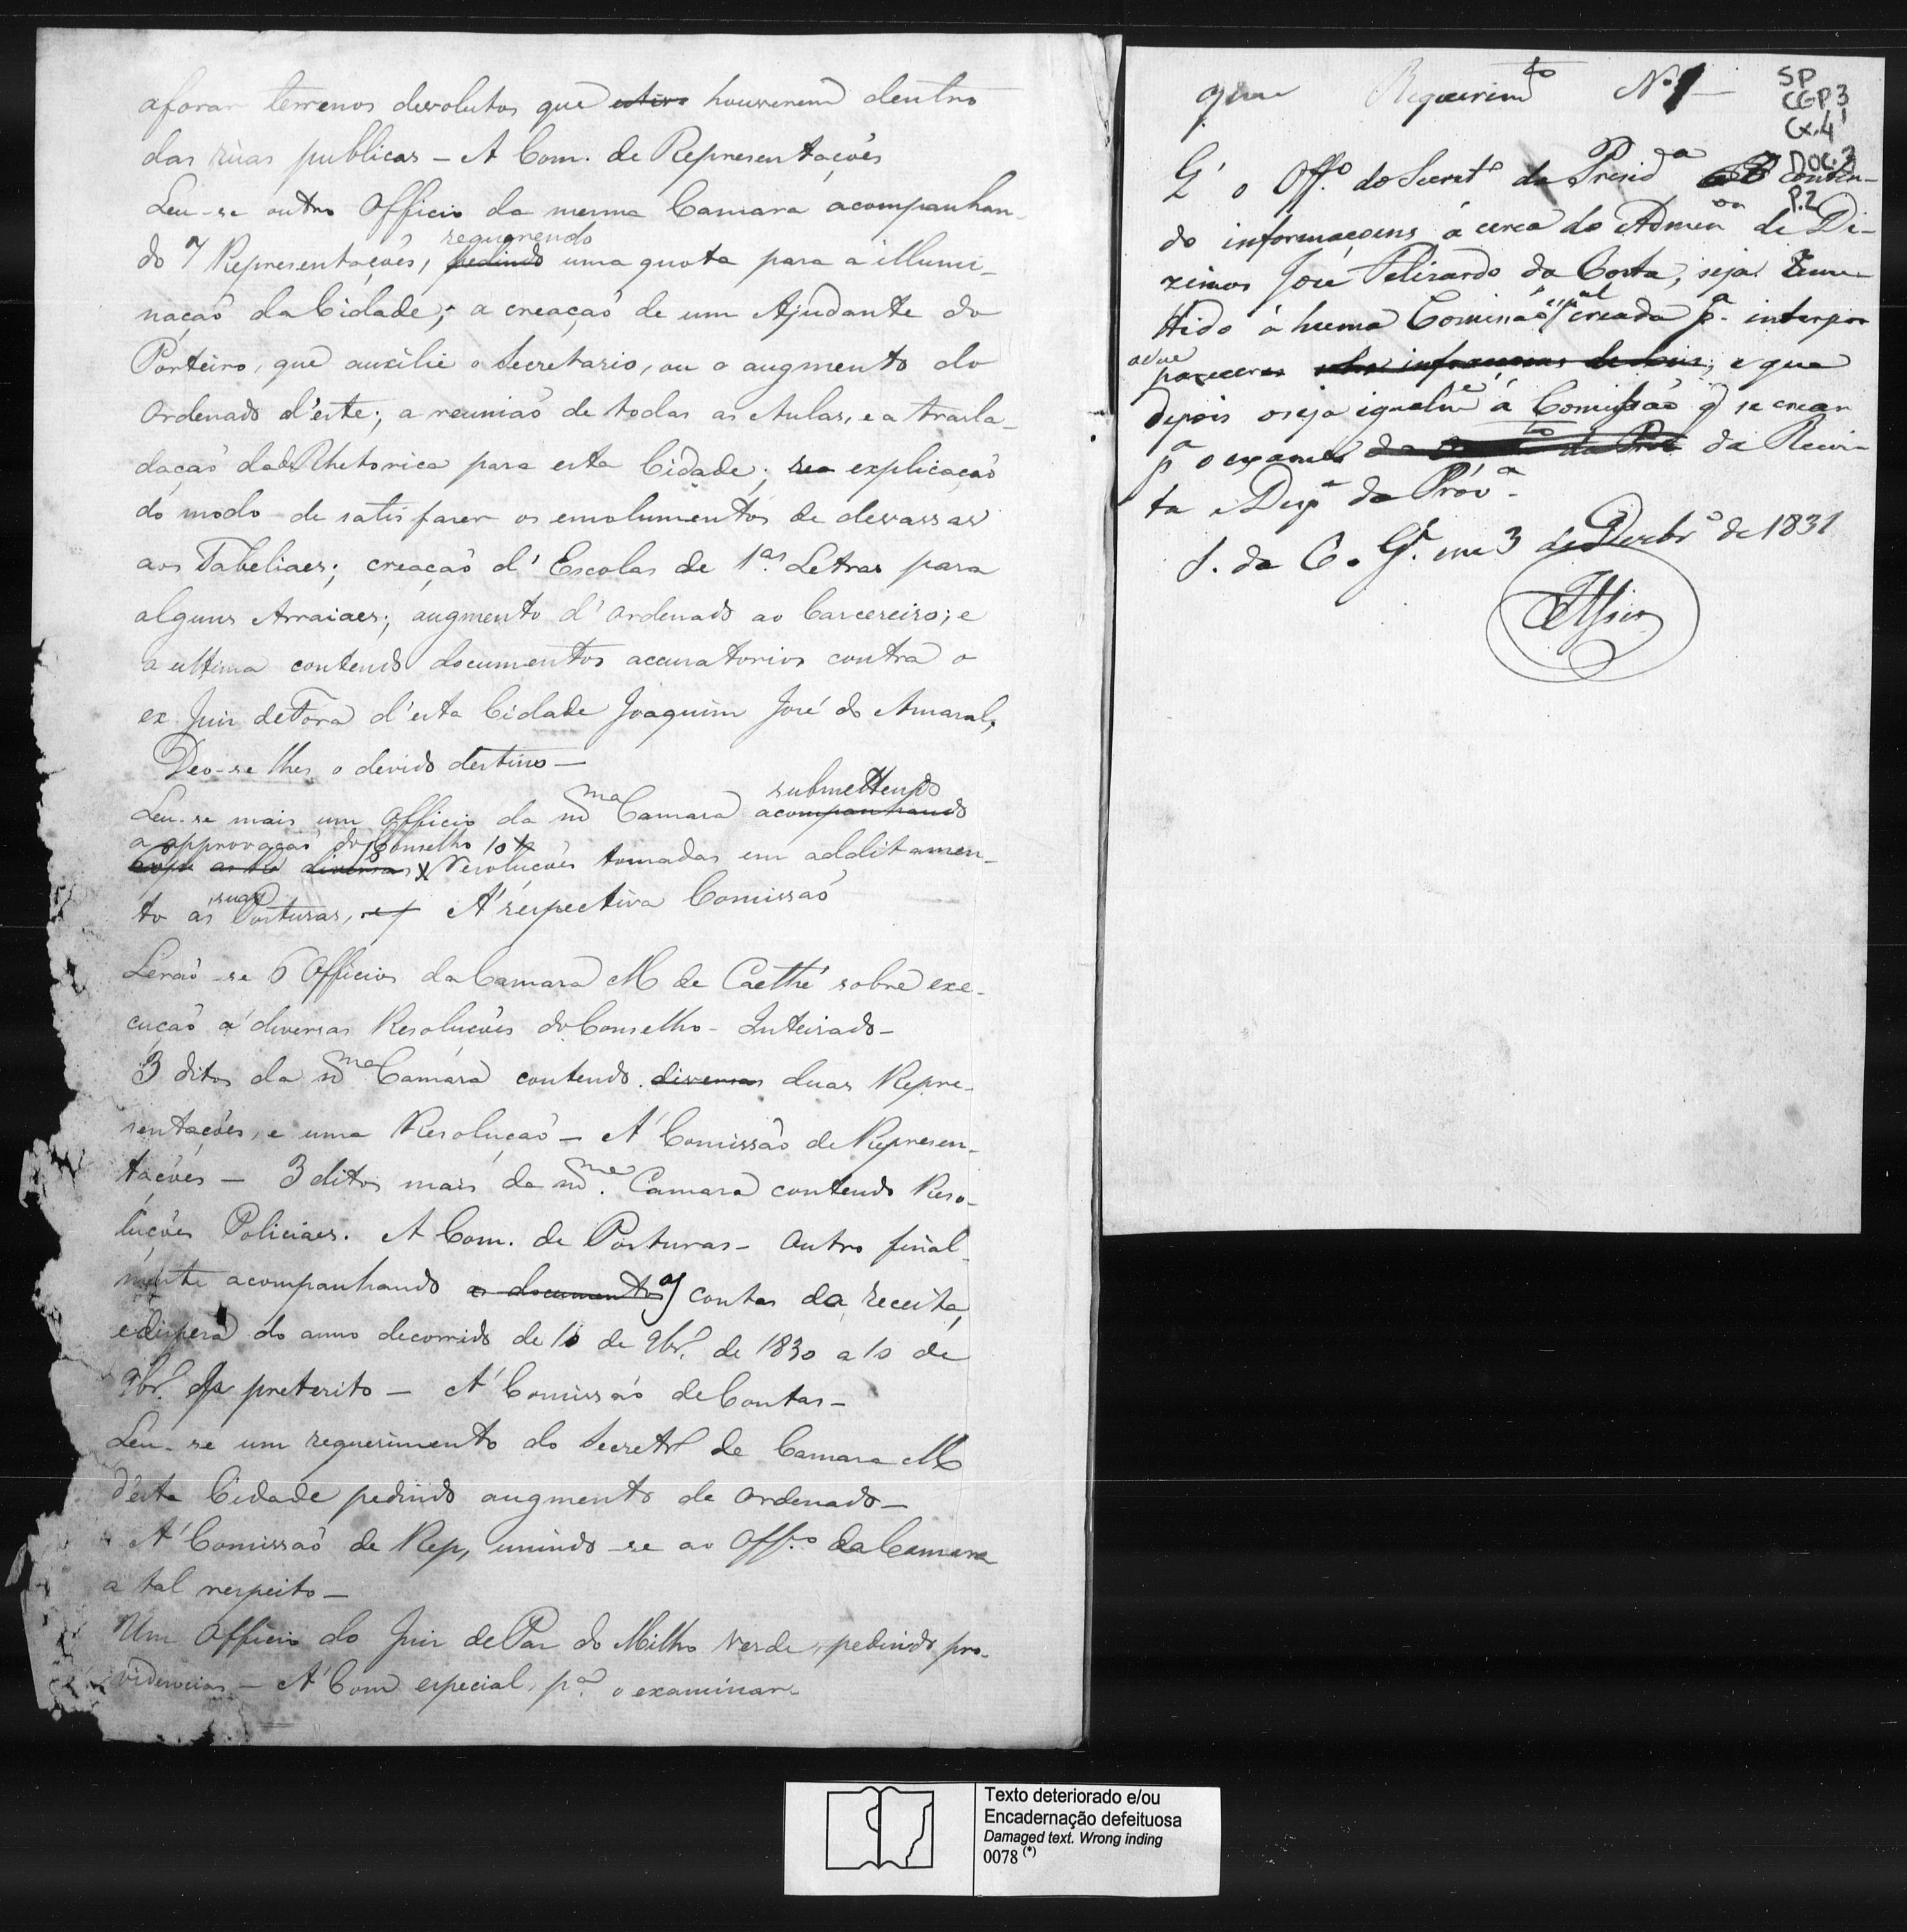 aforar terrenos devolutos que houverem dentro
das ruas publicas – A Com. de Representações
Leu-se outro Officio da mesma Camara acompanhan-
do 7 Representações, pedindo requerendo uma quota para a illumi-
nação da Cidade; a creação de um Ajudante do
Porteiro, que auxilie o Secretario, ou o augmento do
Ordenado d'este; a reunião de todas as Aulas, e a trasla-
dação da de Rhetorica para esta Cidade; explicação
do modo de satisfazer os emolumentos de devassas
aos Tabeliaes; creação d'Escolas de 1.as Letras para
alguns Arraiaes; augmento d'Ordenado ao Carcereiro; e
a ultima contendo documentos accusatorios contra o
ex Juiz de Fora d'esta Cidade Joaquim José do Amaral,
Deo-se lhes o devido destino –
Leu-se mais um Officio da m.ma Camara acompanhando submettendo
a approvação do Conselho 10
diversas Resoluções tomadas em additamen-
to ás suas Posturas, A' respectiva Comissão
Lerão-se 6 Officios da Camara M de Caethé sobre exe-
cução a diversas Resoluções do Conselho – Inteirado –
3 ditos da m.ma Camara contendo diversas duas Repre-
sentações, e uma Resolução – A' Comissão de Represen-
tações – 3 ditos mais da m.ma Camara contendo Reso-
luções Policiaes. A Com. de Posturas – Outro final-
mente acompanhando os documentos as contas da receita,
e dispesa do anno decorrido de 10 de 9br. de 1830 a 10 de
9br. preterito – A' Comissão de Contas –
Leu-se um requerimento do Secret.º da Camara M
d'esta Cidade pedindo augmento de Ordenado –
A' Comissão de Rep, unindo-se ao Off.º da Camara
a tal respeito –
Um Officio do Juiz de Paz do Milho Verde, pedindo pro-
videncias – A' Com especial, p.a o examinar
que Requerim.to N. 1
SP
CGP 3
Cx. 4
DOC. 3
P. 2
Q' o Off.º do Secret.º da Presid.a conten-
do informaçoens á cerca do Admin.or de Di-
zimos José Felizardo da Costa, seja reme-
ttido á huma Comissão esp.al creada p.a interpor
parecer sobre informaçoens; e que
depois o seja igualm.e á Comissão q se crear
p.a o exame da Recei-
ta e Desp.a da Prov.a
S. da C. G. em 3 de Dezbr.º de 1831
Texto deteriorado e/ou
Encadernação defeituosa
Damaged text. Wrong inding
0078 (*)